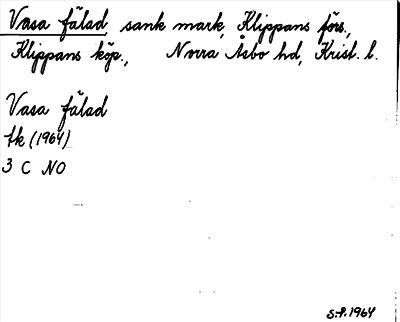 Vasa fälad, sank mark, Klippans förs.,
Klippans köp., Norra Åsbo hd, Krist. l.
Vasa fälad
fk (1964)
3 C NO
S.f. 1964